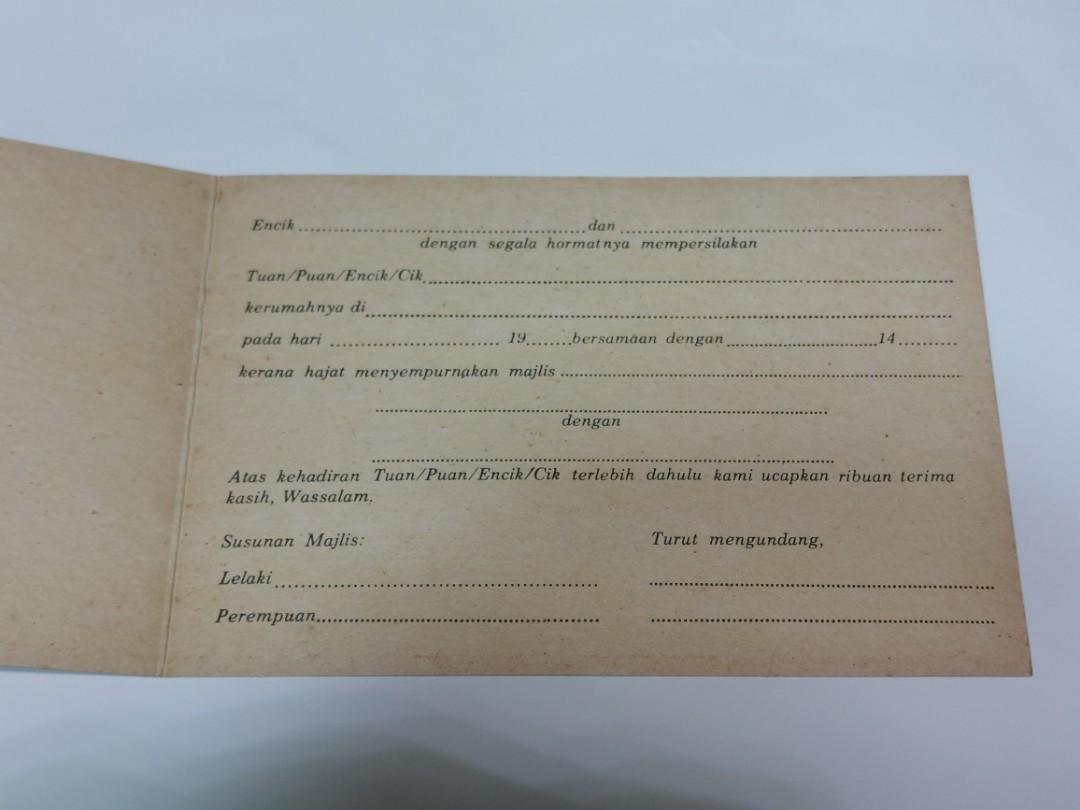 Encik ........................................ dan ........................................
dengan segala hormatnya mempersilakan
Tuan/Puan/Encik/Cik........................................
kerumahnya di........................................
pada hari .................... 19.......bersamaan dengan....................14..........
kerana hajat menyempurnakan majlis ........................................
........................................
dengan
........................................
Atas kehadiran Tuan/Puan/Encik/Cik terlebih dahulu kami ucapkan ribuan terima
kasih, Wassalam.
Susunan Majlis:
Lelaki........................................
Perempuan........................................
Turut mengundang,
........................................
........................................